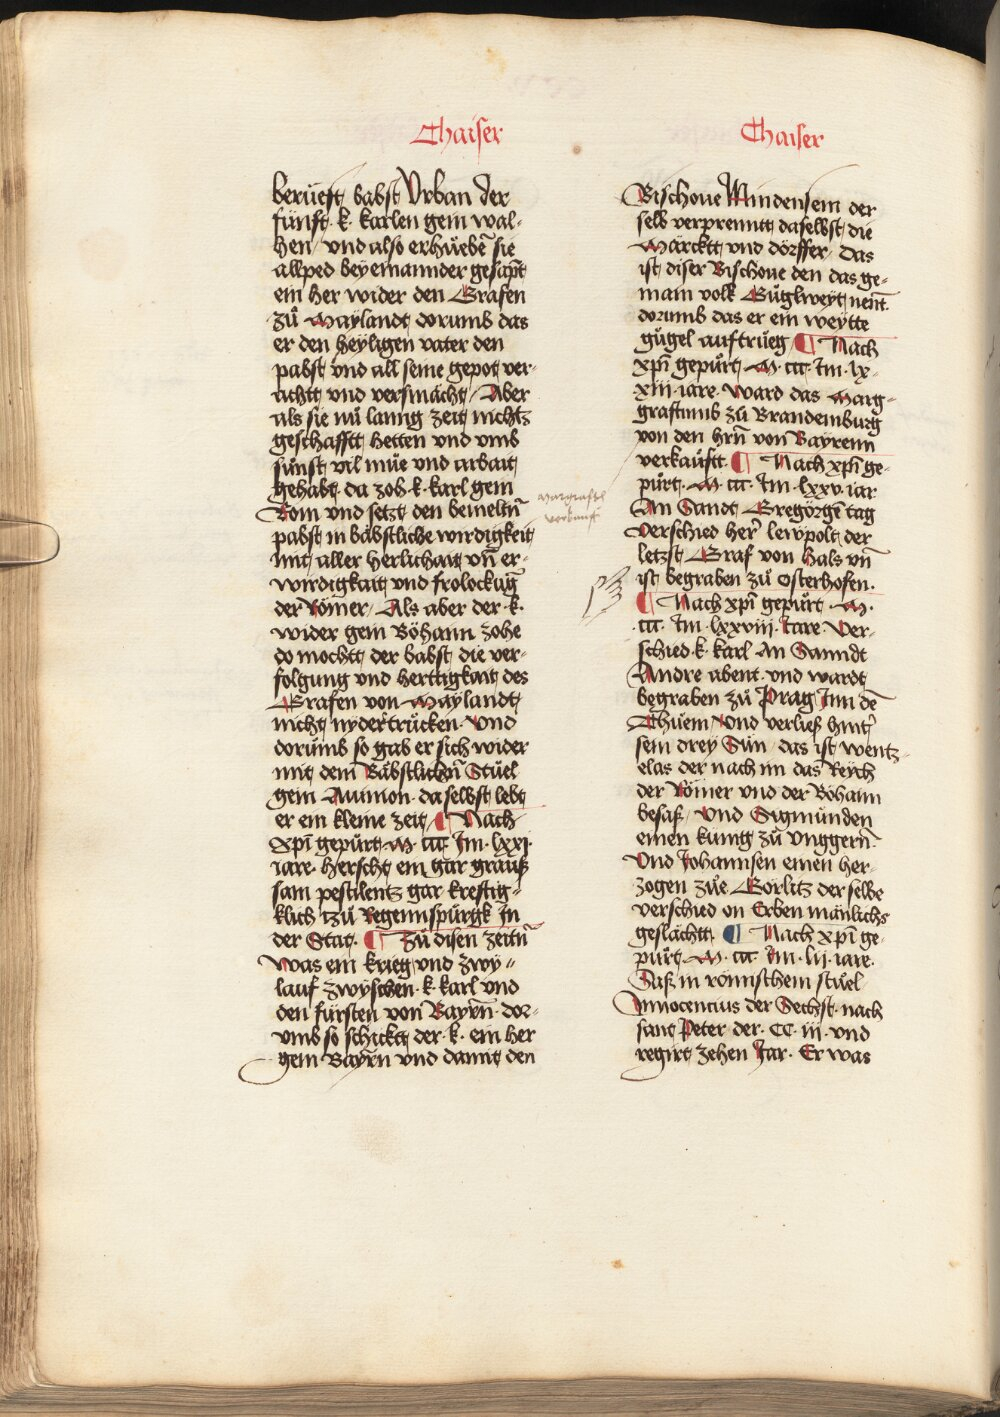 Chaiser
berüeft babst Vrban der
fünft k. karlen gein wal-
hen / vnd also erhüebē sie
allped beyeinannder gesāpt
ein her wider den Grafen
zů Maylandt dorumb das
er den heyligen vater den
pabst vnd all seine gepot ver-
achtt vnd versmächt / Aber
als sie nů lanng zeit nichtz
geschafftt hetten vnd vmb
sünst vil müe vnd arbait
gehabt. da zoh. k. karl gein
Rom vnd setzt den bemeltn̄
pabst in bäbstliche wirdigkeit
mit aller herlichait vn̄ er-
wirdigkait vnd frolockūg
der Römer / Als aber der .k.
wider gein Böhaim zohe
do mocht der babst die ver-
folgung vnd herttigkait des
Grafen von Maylandt
nicht nydertrücken. Vnd
dorümb so gab er sich wider
mit dem Bäbstlichn̄ Stüel
gein Auinion. daselbst lebt
er ein kleine zeit ¶ Nach
xp̄i gepürt. M. ccc. Im. lxxi.
iare. herscht ein gar grauß
sam pestilentz gar kreftig-
klich tzů Regennspürgk In
der Stat. ¶ Zů disen zeitn̄
was ein krieg vnd zwy-
lauf zwyschen. k. karl vnd
den fürsten von Bayrn̄. dor-
vmb so schickt der .k. ein her
gein Bayrn̄ vnd damit den
margrafsch
verkauft
Chaiser
Bischoue Mindensem der
selb verprennt daselbst die
Märcktt vnd dörffer. Das
ist diser Bischoue den das ge-
main volk Gůglweyt nent̄.
dorumb das er ein weytte
gůgel auftrüeg ¶ Nach
xp̄i gepürt. M. ccc. Im. lx-
xiii. iare. Ward das Marg-
graftumb zů Brandemburg
von den hrn̄ von Bayrenn
verkaůftt. ¶ Nach xp̄i ge-
pürt. M. ccc. Im. lxxv. iar
An Sandt Gregörgē tag
Verschied her̄ lewpolt der
letzst Graf von hals vn̄
ist begraben zů Osterhofen.
¶ Nach xp̄i gepürt. M.
.ccc. Im. lxxviii. Iare. Ver-
schied k. karl An Sanndt
Andre abent. vnd wardt
begraben zů Prag Inn dē
Thüem Vnd verließ hint̄
sein drey Sün / das ist wentz-
elas der nach im das Reych
der Römer vnd der Böhaim
besaß / Vnd Sigmünden
einen kunig zů Vnggern̄.
Vnd Johannsen einen her-
zogen zůe Görlitz der selbe
verschied on Erben mänlichs
geslächtt. ¶ Nach xp̄i ge-
pürt. M. ccc. Im. lii. iare.
Saß in römischem stuel
Innocencius der Sechst. nach
sant Peter der. CC. iii. vnd
regirt zehen Jar. Er was